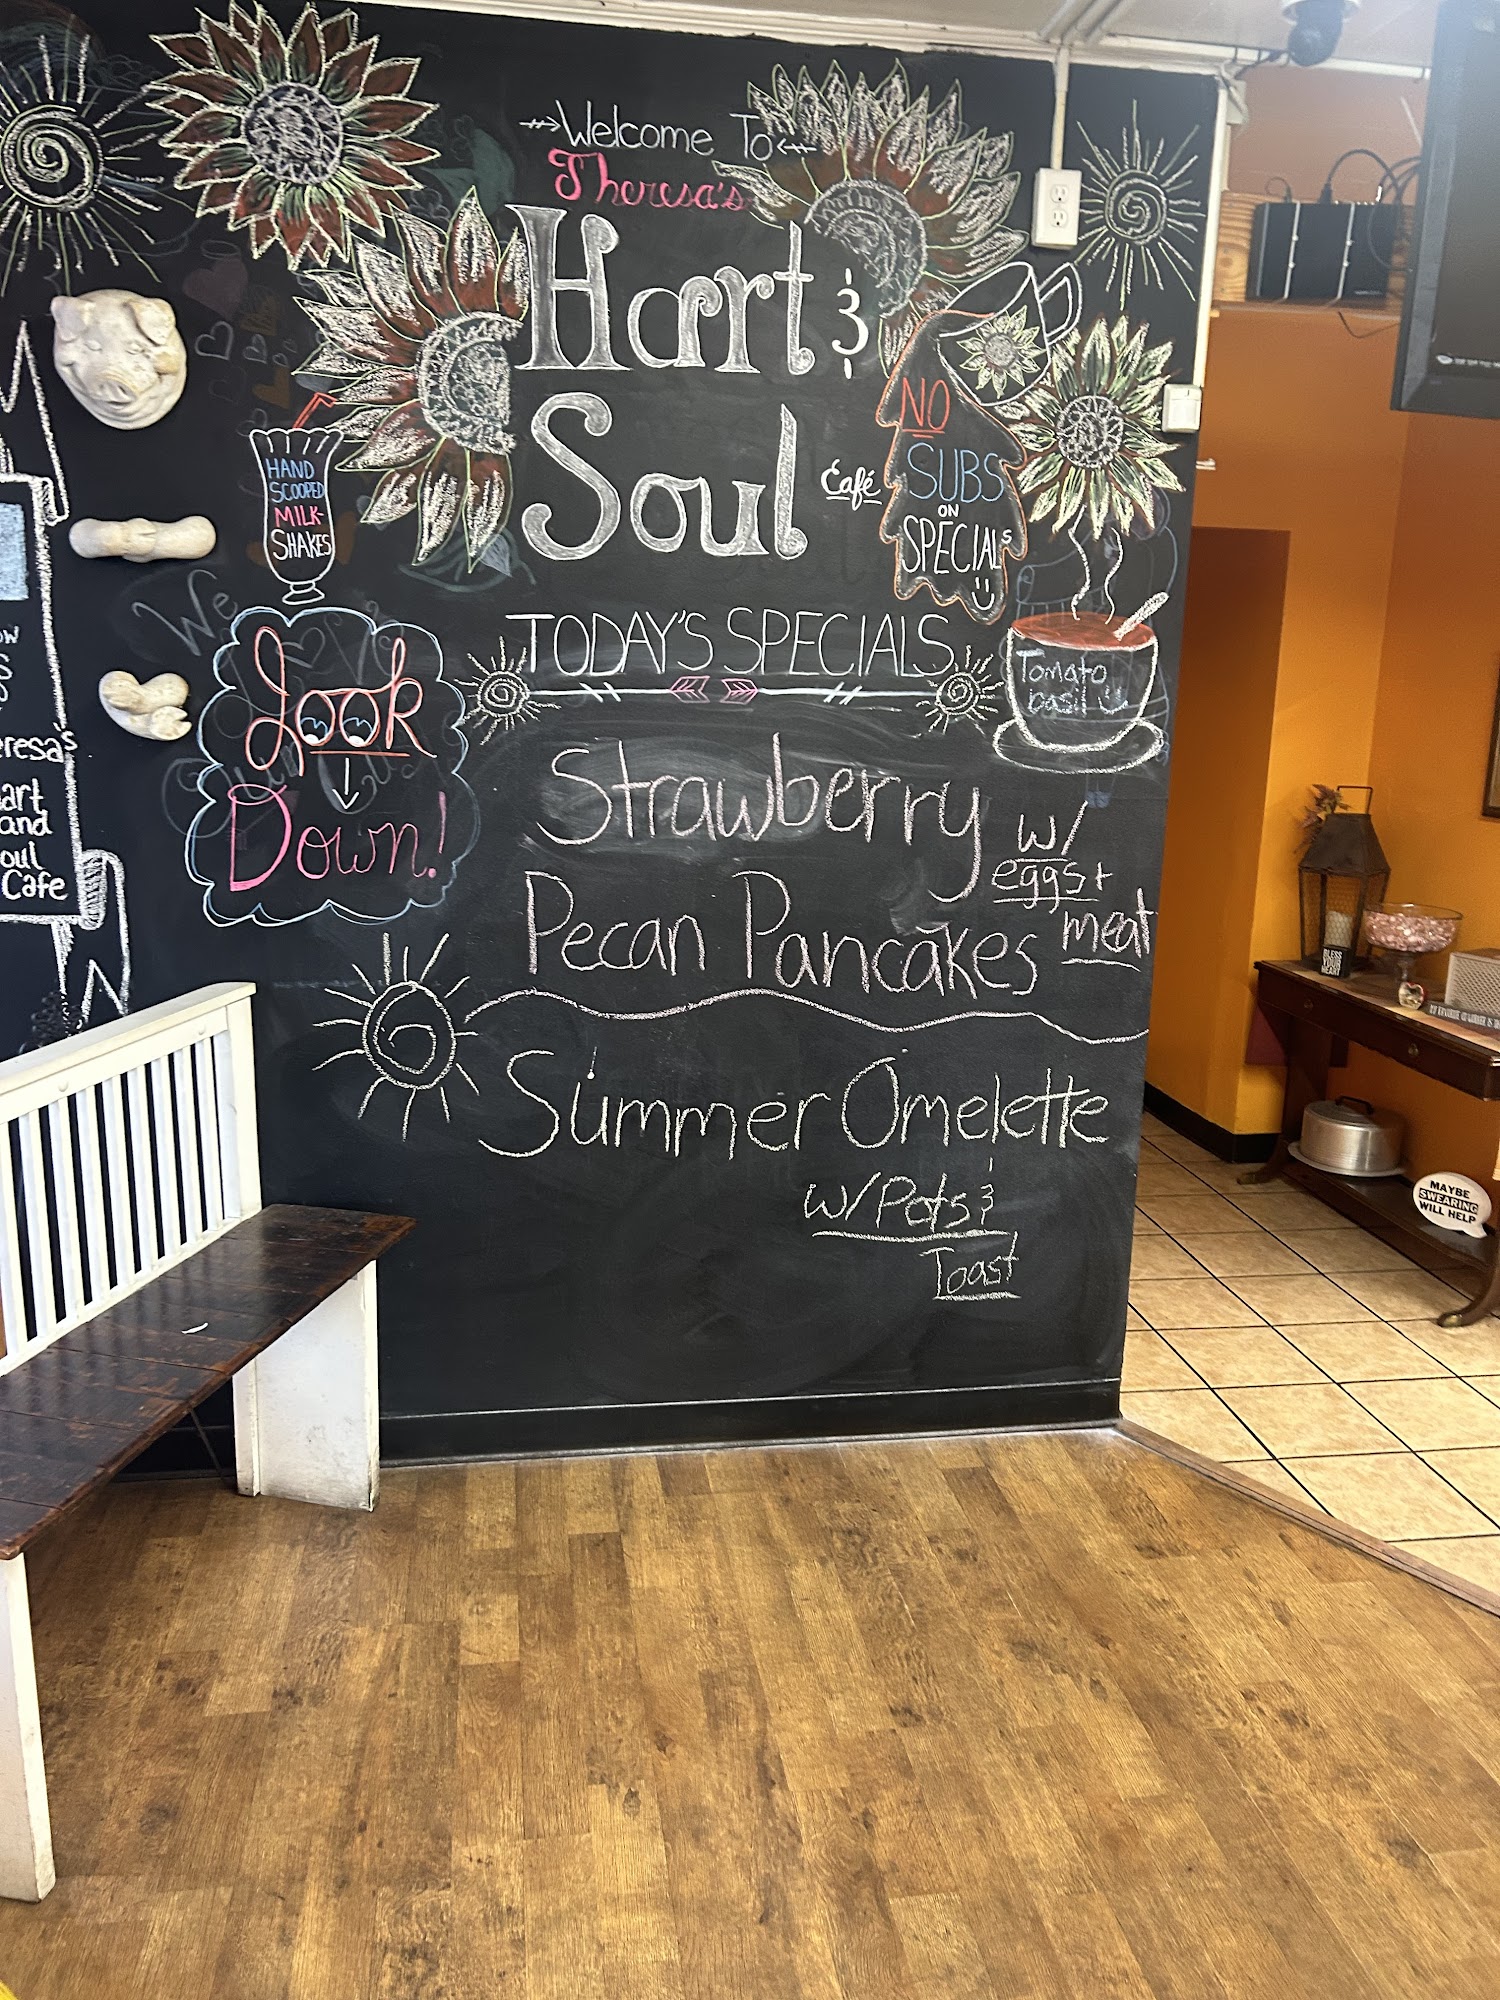 Welcome To
Theresa's
Hart &
Soul
Café
NO
SUBS
ON
SPECIALS
HAND
SCOOPED
MILK-
SHAKES
Look
Down!
TODAY'S SPECIALS
Tomato
basil
Strawberry
Pecan Pancakes
w/
eggs +
meat
Summer Omelette
w/ Pots &
Toast
eresa's
art
and
oul
Cafe
BLESS
YOUR
HEART
MAYBE
SWEARING
WILL HELP